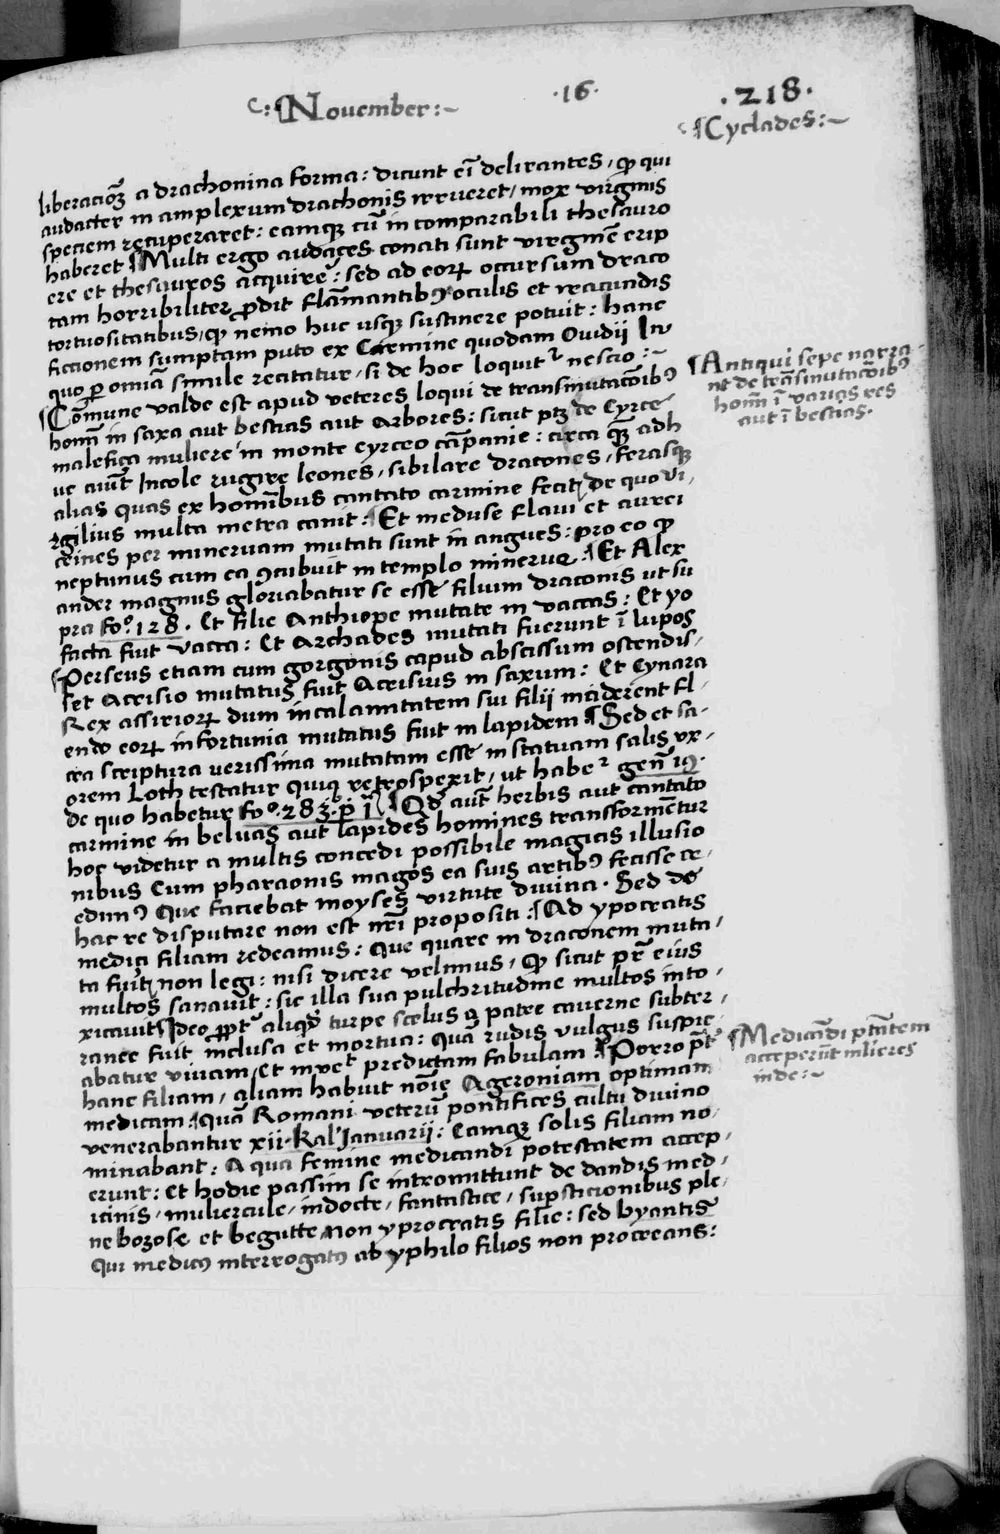 C: ¶November:~
·16·
·218·
¶Cyclades:~
liberacioꝫ a drachonina forma: dicunt eī delirantes, ꝙ qui
audacter in amplexum drachonis irrueret, mox virginis
speciem recuperaret: eamqꝫ cū incomparabili thesauro
haberet ¶Multi ergo audaces conati sunt virginē erip
ere et thesauros acquirē: sed ad eoꝝ occursum draco
tam horribiliter ꝓdit flāmantibꝰ oculis et iracundis
tortuositatibus, ꝙ nemo huc usqꝫ sustinere potuit: hanc
fictionem sumptam puto ex Carmine quodam Ouidij In
quo ꝑ omīa simile recitatur, si de hoc loquitᷣ nescio:~
¶Cōmune valde est apud veteres loqui de transmutacōibꝰ
homīn in saxa aut bestias aut arbores: sicut ptꝫ de Cyrce
malefica muliere in monte cyrceo cāpanie: circa qꝫ adh
uc aiūt Incole rugire leones, sibilare dracones, ferasqꝫ
alias quas ex homībus cantato carmine fecit, de quo vi,
rgilius multa metra canit: ¶Et meduse flaui et aurei
crines per mineruam mutati sunt in angues: pro eo ꝙ
neptunus cum ea ꝯcubuit in templo minerue ¶Et Alex
ander magnus gloriabatur se esse filium draconis ut su
pra fo.º 128. Et filie Anthiope mutate in vaccas: Et yo
facta fuit vacca: Et Archades mutati fuerunt ī lupos
¶Perseus etiam cum gorgonis capud abscissum ostendis,
set Acrisio mutatus fuit Acrisius in saxum: Et Cynara
Rex assirioꝝ dum in calamitatem sui filij inciderent fl,
endo eoꝝ infortunia mutatus fuit in lapidem ¶Sed et sa,
cra scriptura verissima mutatam esse in statuam salis vx,
orem Loth testatur quia retrospexit, ut habeᷣ geñ 19.
de quo habetur fo.º 283. ꝑ ī ¶Qđ aūt herbis aut cantato
carmine in beluas aut lapides homines transformētur
hoc videtur a multis concedi possibile magicis illusio
nibus Cum pharaonis magos ea suis artibꝰ fecisse cr,
edimꝰ Que faciebat moyses virtute diuina. Sed de
hac re disputare non est nr̄i propositi: ¶Ad ypocratis
medici filiam redeamus: Que quare in draconem muta,
ta fuit, non legi: nisi dicere velimus, ꝙ sicut pr̄ eius
multos sanauit: sic illa sua pulchritudine multos into,
xicauit ¶Ideo ꝓptᷣ aliqđ turpe scelus a patre cauerne subter,
ranee fuit inclusa et mortua: Quā rudis vulgus suspic,
abatur viuam, Et inueᷣt predictam fabulam ¶Porro pᷣt
hanc filiam, aliam habuit noīe Ageroniam optimam
medicam ¶Quā Romani veterū pontifices cultu diuino
venerabantur xij. Kal' Januarij: Eamqꝫ solis filiam no,
minabant: A qua femine medicandi potestatem accep,
erunt: Et hodie passim se intromittunt de dandis med,
icinis, muliercule, indocte, fantastice, supsticionibus ple,
ne bozose et begutte, non yprocratis filie: sed byantis
Qui medicꝰ interrogatꝰ ab yphilo filios non procreans:
¶Antiqui sepe narra
nt de trāsmutacōibꝰ
homīn ī varias res
aut ī bestias.
¶Medicādi ptātem
acceperūt mlieres
inde:~